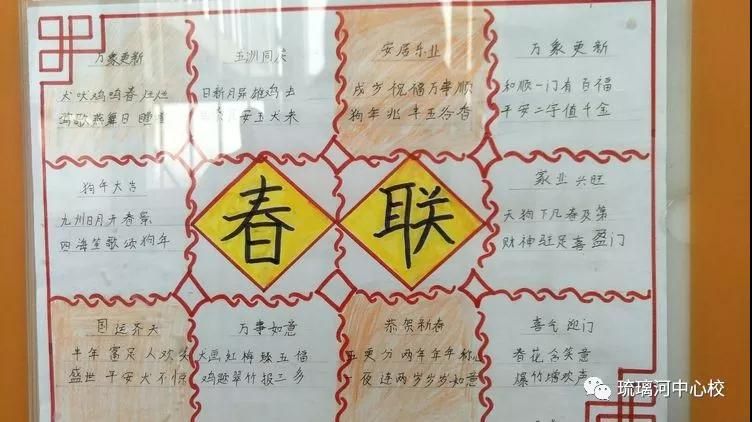 万象更新
犬吠鸡鸣春
莺歌燕舞日
五洲同庆
日新月异雄鸡去
安玉犬来
安居乐业
成岁祝福万事顺
狗年兆丰五谷香
万象更新
和顺一门有百福
平安二字值千金
狗年大吉
九州日月开春景
四海笙歌颂狗年
春联
家业兴旺
天狗下凡春及第
财神驻足喜盈门
国运齐天
丰年富足人欢笑
盛世平安犬不惊
万事如意
犬画红梅臻五福
鸡题翠竹报三多
恭贺新春
五更分两年年年称心
夜连两岁岁岁如意
喜气迎门
春花含笑意
爆竹增欢声
琉璃河中心校